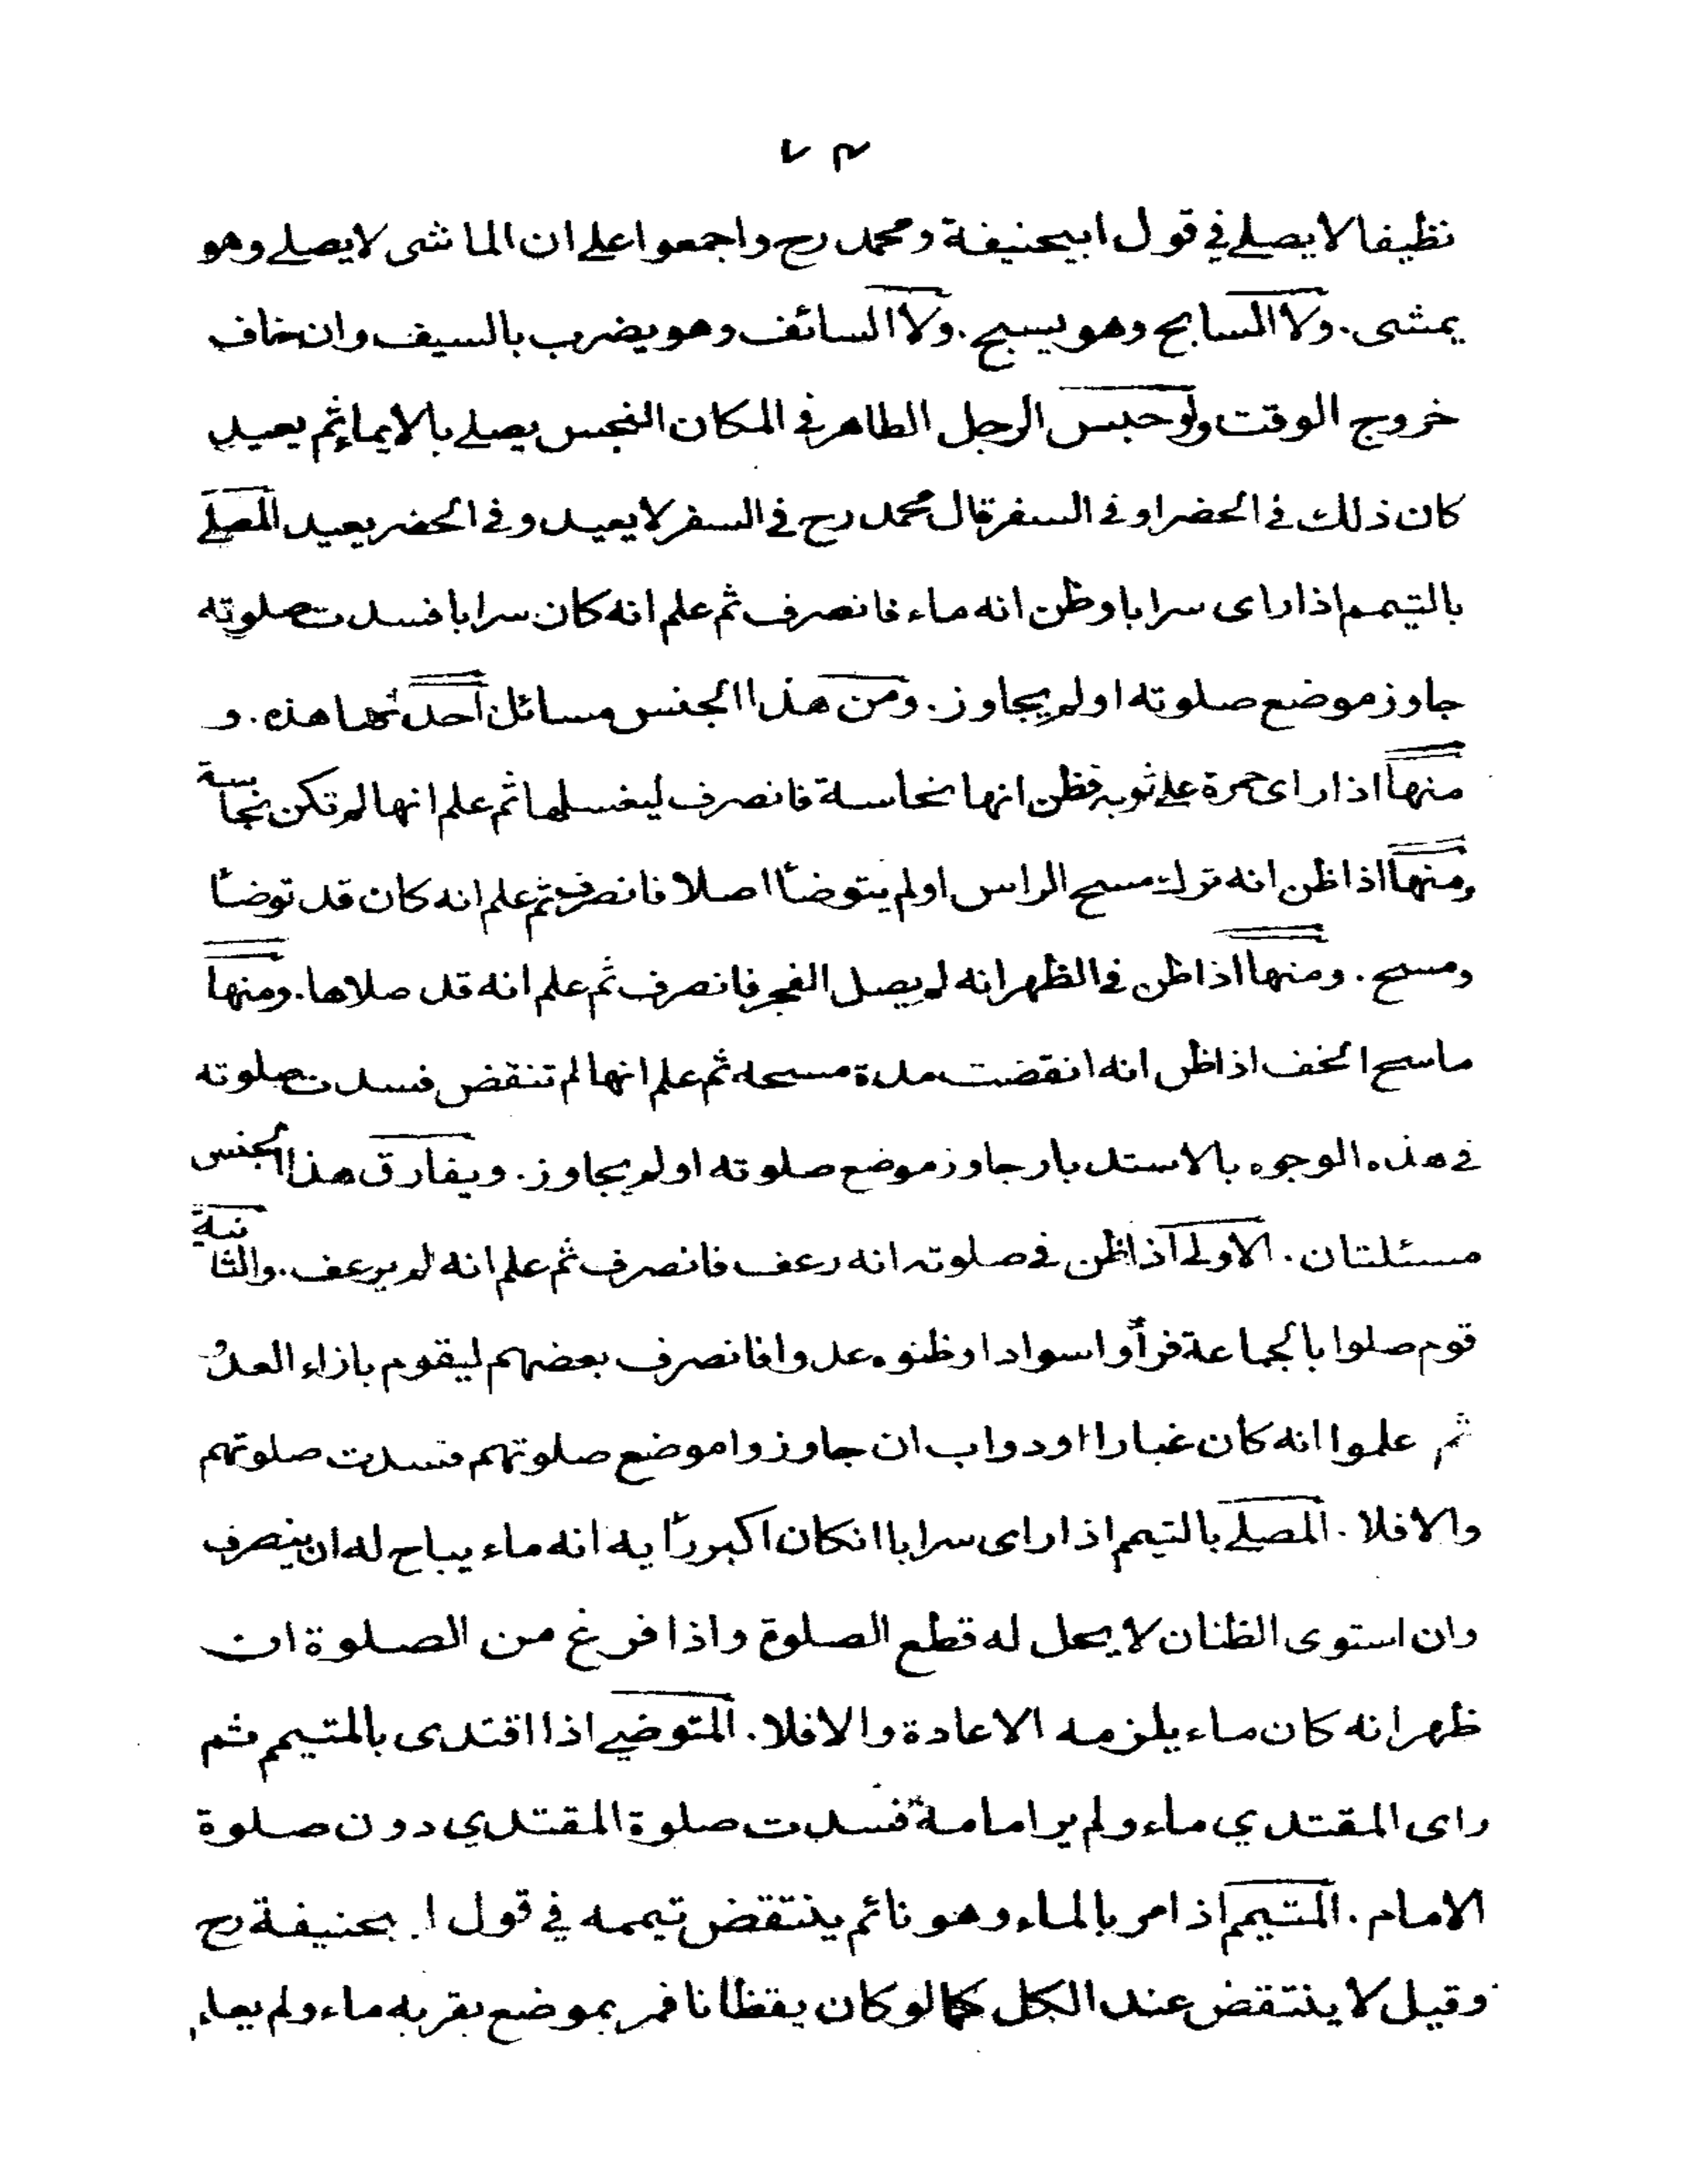 ٧٣
نظيفا لا يصلے فے قول ابيحنيفة ومحمد رح واجمعوا علے ان الماشى لا يصلے وهو
يمشى. ولا السابح وهو يسبح. ولا السائف وهو يضرب بالسيف وان خاف
خروج الوقت ولو حبس الرجل الطاهر فے المكان النجس يصلے بالايماء ثم يعيد
كان ذلك فے الحضر او فے السفر قال محمد رح فے السفر لا يعيد و فے الحضر يعيد المصلے
بالتيمم اذا راى سرابا وظن انه ماء فانصرف ثم علم انه كان سرابا فسدت صلوته
جاوز موضع صلوته او لم يجاوز. ومن هذا الجنس مسائل احدٰىها هذه. و
منها اذا راى حمرة علے ثوبه فظن انها نجاسة فانصرف ليغسلها ثم علم انها لم تكن نجاسة
ومنها اذا ظن انه ترك مسح الراس او لم يتوضأ اصلا فانصرف ثم علم انه كان قد توضأ
ومسح. ومنها اذا ظن فے الظهر انه لم يصل الفجر فانصرف ثم علم انه قد صلاها. ومنها
ماسح الخف اذا ظن انه انقضت مدة مسحه ثم علم انها لم تنقض فسدت صلوته
فے هذه الوجوه بالاستدبار جاوز موضع صلوته او لم يجاوز. ويفارق هذا الجنس
مسئلتان. الاولے اذا ظن فے صلوته انه رعف فانصرف ثم علم انه لم يرعف. والثانية
قوم صلوا بالجماعة فرأوا سوادا وظنوه عدوا فانصرف بعضهم ليقوم بازاء العدو
ثم علموا انه كان غبارا او دواب ان جاوزوا موضع صلوتهم فسدت صلوتهم
والا فلا. المصلے بالتيمم اذا راى سرابا انكان اكبر رأيه انه ماء يباح له ان ينصرف
وان استوى الظنان لا يحل له قطع الصلوة واذا فرغ من الصلوة ان
ظهر انه كان ماء يلزمه الاعادة والا فلا. المتوضے اذا اقتدى بالمتيمم ثم
راى المقتدي ماء ولم ير امامه فسدت صلوة المقتدي دون صلوة
الامام. المتيمم اذا مر بالماء وهو نائم ينتقض تيممه فے قول ابيحنيفة رح
وقيل لا ينتقض عند الكل كما لو كان يقظانا فمر بموضع بقربه ماء ولم يعلم